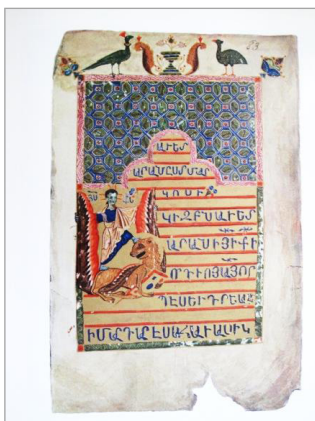 ԱՒԵՏ
ԱՐԱՆԸՍՏՄԱՐ
ԿՈՍԻ
ԿԻԶԲՆԱՒԵՏ
ԱՐԱՆԻՅԻՔԻ
ՈՐԴՒՈՅԱՅՈՐ
ՊԷՍԵՒԳՐԵԱԼ
ԻՄԱՐԳԱՐԷՍԱՀԱՒԱՍԻԿ